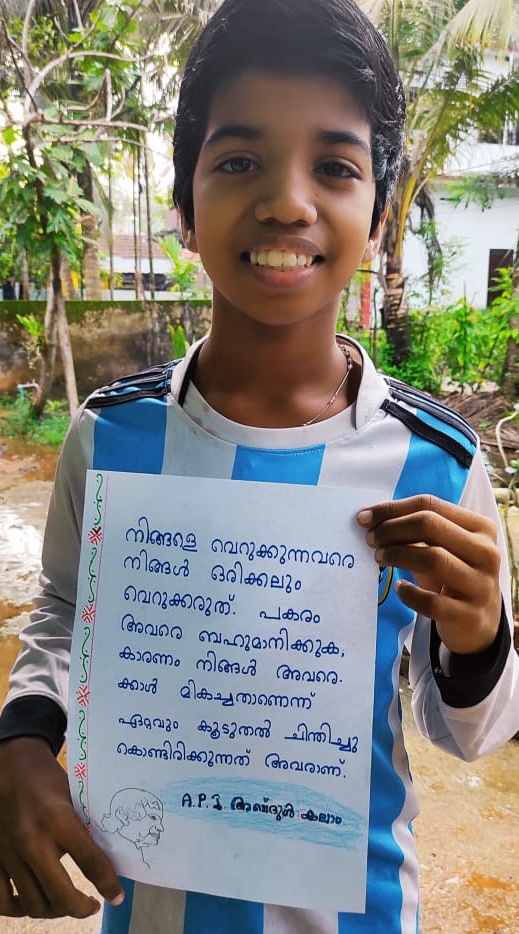 നിങ്ങളെ വെറുക്കുന്നവരെ
നിങ്ങൾ ഒരിക്കലും
വെറുക്കരുത്. പകരം
അവരെ ബഹുമാനിക്കുക,
കാരണം നിങ്ങൾ അവരെ.
ക്കാൾ മികച്ചതാണെന്ന്
ഏറ്റവും കൂടുതൽ ചിന്തിച്ചു
കൊണ്ടിരിക്കുന്നത് അവരാണ്.
A.P.J. അബ്ദുൾ കലാം